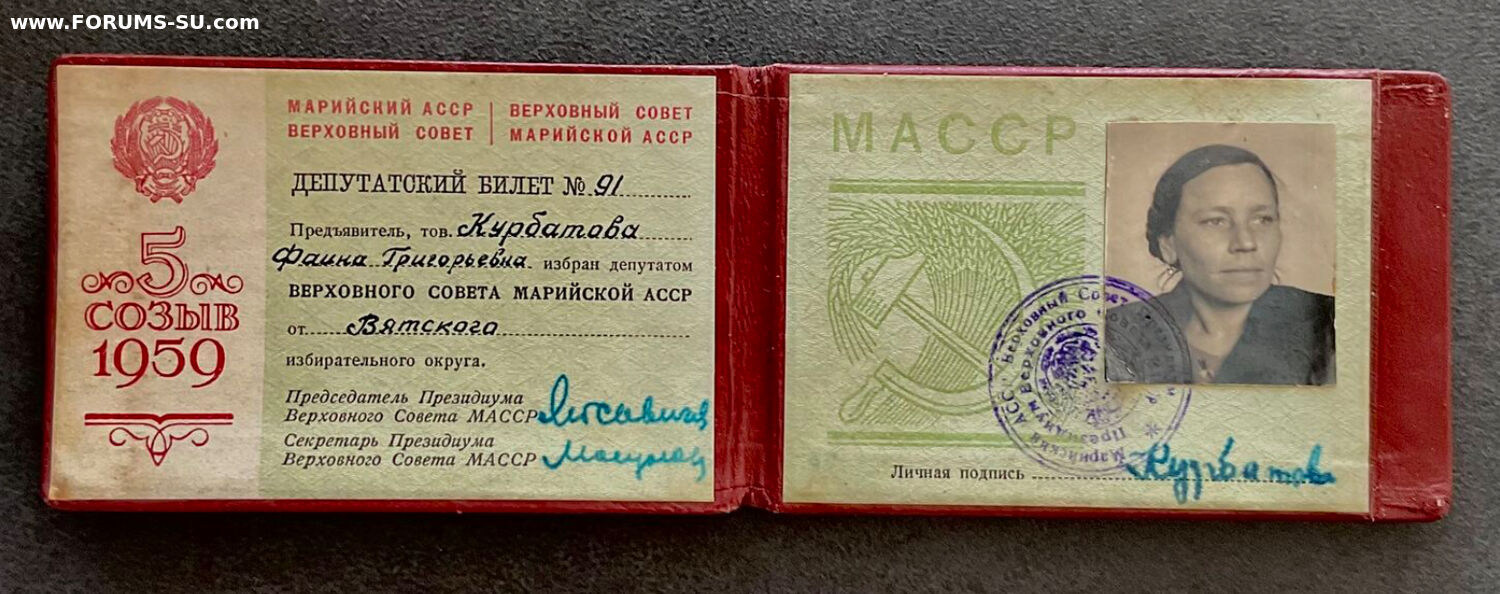 www.FORUMS-SU.com
МАРИЙСКИЙ АССР
ВЕРХОВНЫЙ СОВЕТ
ВЕРХОВНЫЙ СОВЕТ
МАРИЙСКОЙ АССР
5
СОЗЫВ
1959
ДЕПУТАТСКИЙ БИЛЕТ № 91
Предъявитель, тов. Курбатова
Фаина Григорьевна избран депутатом
ВЕРХОВНОГО СОВЕТА МАРИЙСКОЙ АССР
от Вятского
избирательного округа.
Председатель Президиума
Верховного Совета МАССР
Секретарь Президиума
Верховного Совета МАССР
МАССР
Верховный Совет
Марийский АССР
Президиум Верховного
Личная подпись Курбатова